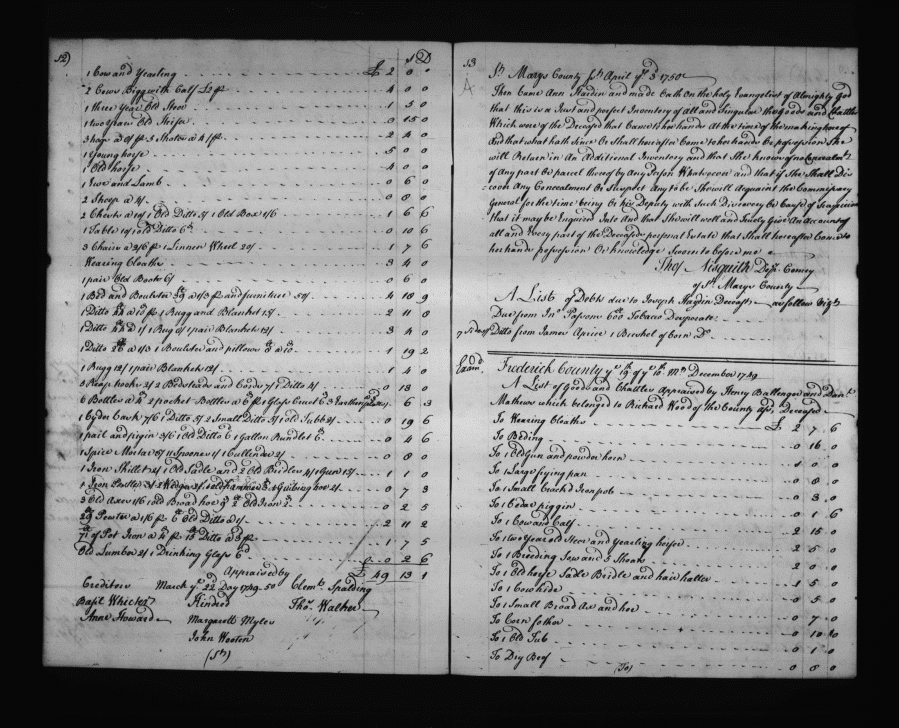 52)
S D
1 Cow and Yearling £ 2 0 0
2 Cows Bigg with Calf 4 0 0
1 three Year Old Steer 1 5 0
1 two Year Old Heifer 0 15 0
2 4 0
1 Young horse 5 0 0
1 Old horse 4 0 0
1 Ewe and Lamb 0 6 0
2 Sheep a 4/ 0 8 0
2 Chests a 10/ 1 Old Ditto 5/ 1 Old Box 1/6 1 6 6
1 Table 1 old Ditto 0 10 6
3 Chairs a 2/6 pr 1 Linnen Wheel 20/ 1 7 6
Wearing Cloaths 3 4 0
1 pair Old Boots 6/ 0 6 0
1 Bed and Boulster and furniture 50/ 4 18 9
1 Ditto 1 Rugg and Blanket 15/ 2 11 8
1 Ditto 1 Rug 1 pair Blankets 12/ 3 4 0
1 Ditto 1 Boulster and pillows 1 19 2
1 Rugg 12/ 1 pair Blankets 12/ 1 4 0
3 Reap hooks 2/ 2 Bedsteads and Cords 7/ 1 Ditto 4/ 0 13 0
6 Bottles 2 pocket Bottles 1 Glass Cruet 6 3
1 Cyder Cask 7/6 1 Ditto 5/ 2 Small Ditto 5/ 1 old Tubb 2/ 0 19 6
1 pail and pigin 1 Old Ditto 1 Gallon Rundlet 0 4 6
1 Spice Mortar 5/ 11 Spoons 1/ 1 Cullinder 2/ 0 8 0
1 Iron Skillet 1 Old Sadle and 2 Old Bridles 4/ 1 Gun 15/ 1 1 0
1 Iron Pestle 2 Wedges 0 7 3
3 Old Axes 1/6 1 old Broad hoe 2 Old Iron 0 2 5
29 Pewter a 1/6 pr 6 Old Ditto 2 11 2
71 of Pot Iron a 4 pr 15 Ditto a 3 pr 1 7 5
Old Lumber 2/ 1 Drinking Glass 6d 0 2 6
Appraised by £ 49 13 1
Creditors March ye 22 Day 1749-50 Clemt. Spalding
Bapt Whicter Kindred Thos. Walker
Anne Howard Margarett Myles
John Wooten
53
St. Marys County Sst. April ye 3d 1750
Then Came Ann Hardin and made Oath on the holy Evangelist of Almighty God
that this is a Just and perfect Inventory of all and Singular the goods and Chattles
Which were of the Deceased that Came to her hands At the time of the making hereof
And that what hath Since Or Shall hereafter Come to her hands Or possession She
will Return in An Additional Inventory and that She knows of no Concealmt.
of Any part Or parcel thereof by Any Person Whatsoever and that if She Shall Dis
cover Any Concealment Or Suspect Any to be She will Acquaint the Commissary
General for the time being Or his Deputy with Such Discovery Or Cause of Suspicion
that it may be Enquired Into And that She will well and truely Give An Account of
all and Every part of the Deceaseds personal Estate that Shall hereafter Come to
her hands possession Or knowledge Sworn to before me
Thos Aisquith Depy. Comry
of St. Marys County
A List of Debts due to Joseph Hardin Deceasd. as follow Vizt.
Due from Jno. Parsons 600 Tobacco Desperate
Ditto from James Aprice 1 Bushel of Corn Do.
Exam.
Frederick County ye 19 of ye 10 Mth December 1749
A List of Goods and Chattles Appraised by Henry Ballenger and Danl.
Mathews which belonged to Richard Wood of the County afsd. Deceased
To Wearing Cloaths £ 2 7 6
To Beding 0 16 0
To 1 Old Gun and powder horn 1 0 0
To 1 Large frying pan 0 8 0
To 1 Small Crack'd Iron pot 0 3 0
To 1 Cedar piggin 0 1 6
To 1 Cow and Calf 2 15 0
To 1 two Year old Steer and Yearling heifer 2 5 0
To 1 Breeding Sow and 5 Shoats 2 0 0
To 1 Old horse Sadle Bridle and hair halter 1 5 0
To 1 Cow hide 0 5 0
To 1 Small Broad Ax and hoe 0 7 0
To Corn fother 0 10 0
To 1 Old Tub 0 1 0
To Dry Beef 0 8 0
(To)